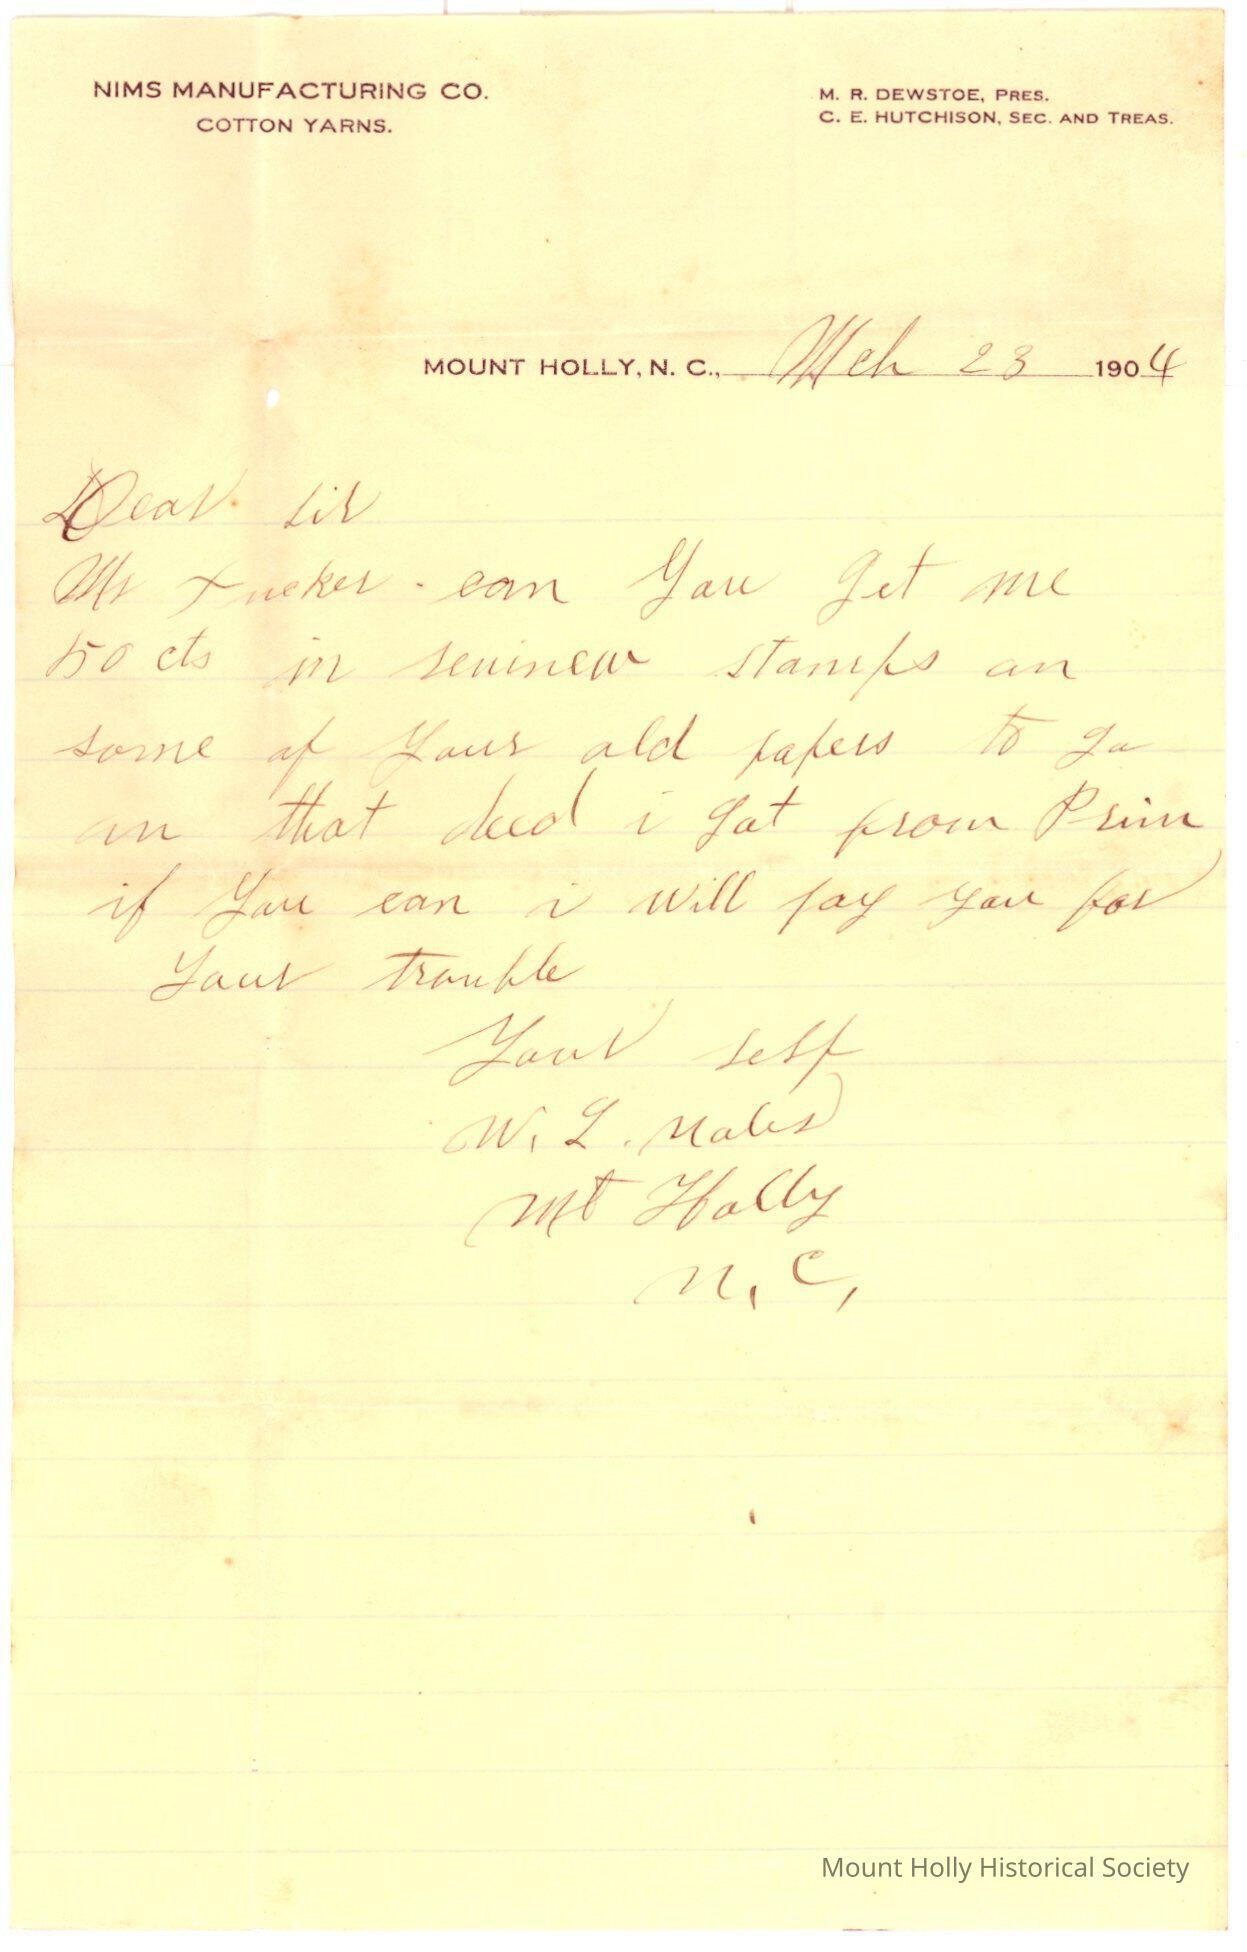 NIMS MANUFACTURING CO.
COTTON YARNS.
M. R. DEWSTOE, PRES.
C. E. HUTCHISON, SEC. AND TREAS.
MOUNT HOLLY, N. C., Mch 23 1904
Dear sir
Mr Tucker - can You Get me
50 cts in stamps an
some of Your old papers to go
on that deed i Got from Prim
if You can i will pay you for
Your trouble
Your self
W. L.
Mt Holly
N. C,
Mount Holly Historical Society